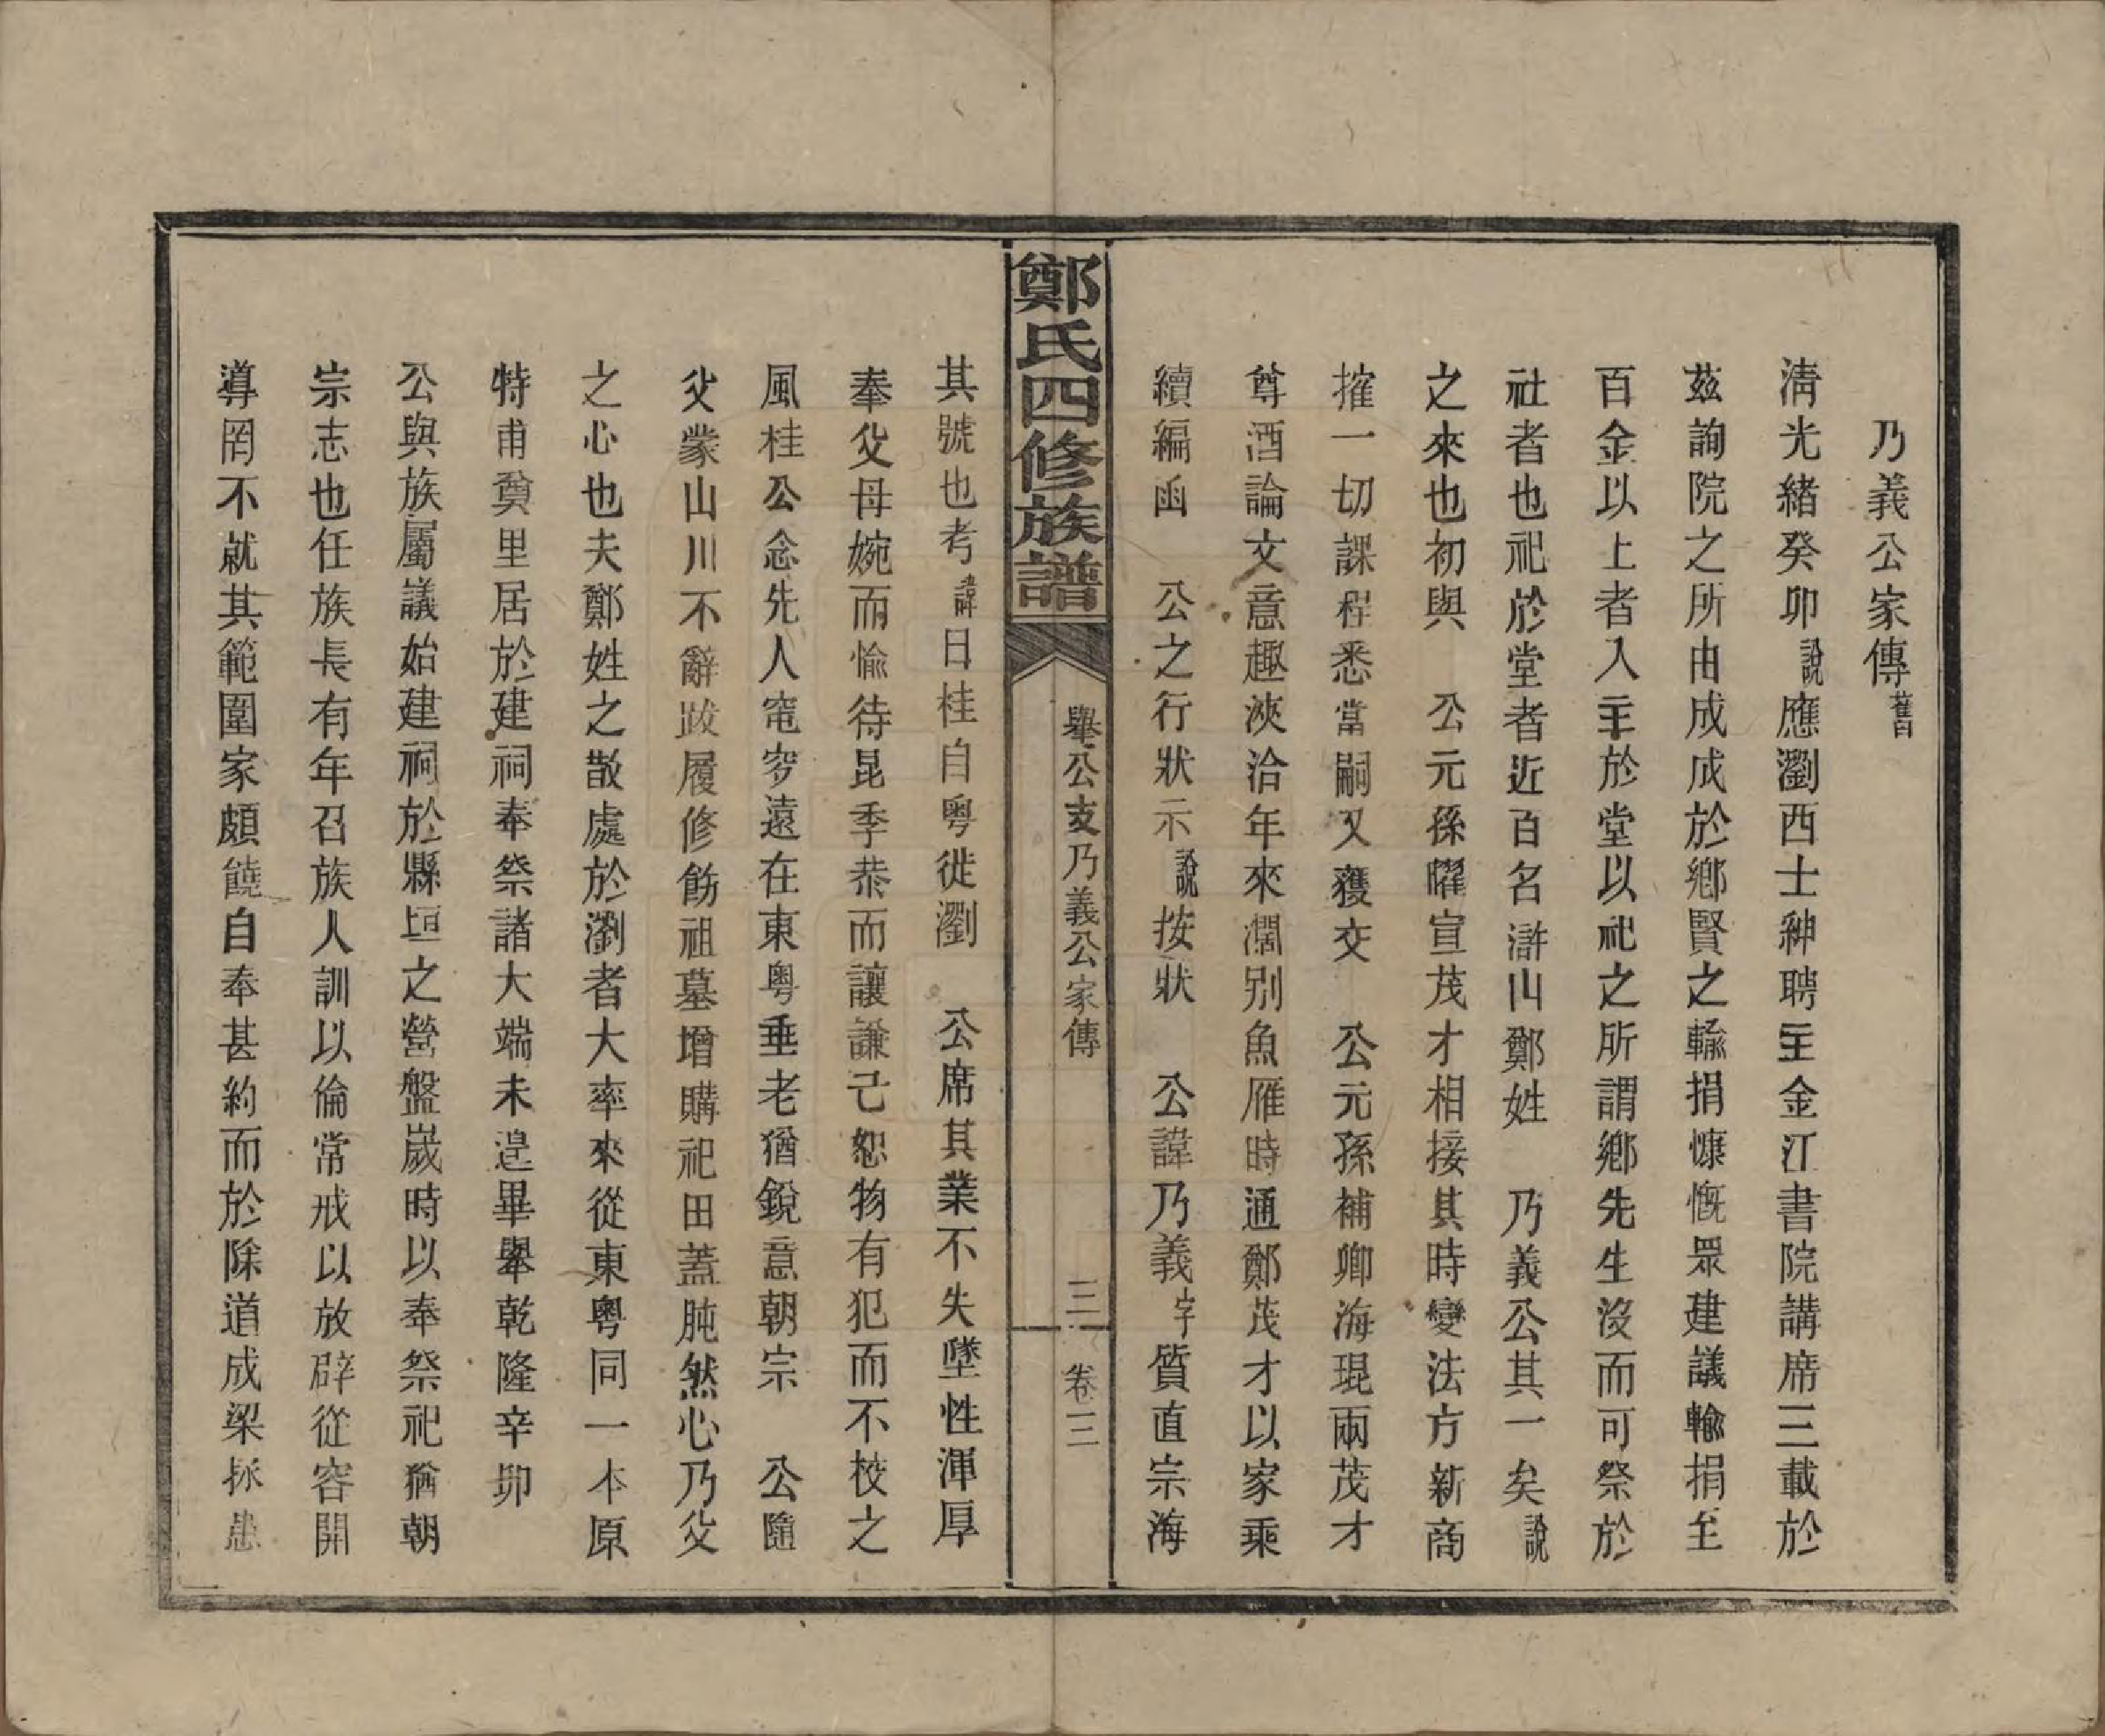 乃義公家傳舊
淸光緒癸卯說應瀏西士紳聘主金江書院講席三載於
茲詢院之所由成成於鄕賢之輸捐慷慨眾建議輸捐至
百金以上者入主於堂以祀之所謂鄕先生沒而可祭於
社者也祀於堂者近百名滸山鄭姓 乃義公其一矣說
之來也初與 公元孫曜宣茂才相接其時變法方新商
搉一切課程悉當嗣又獲交 公元孫補卿海琨兩茂才
尊酒論文意趣浹洽年來濶别魚雁時通鄭茂才以家乘
續編函 公之行狀示說按狀 公諱乃義字質直宗海
鄭氏四修族譜
舉公支乃義公家傳
三
卷三
其號也考諱日桂自粤徙瀏 公席其業不失墜性渾厚
奉父母婉而愉待昆季恭而讓謙己恕物有犯而不校之
風桂公念先人窀穸遠在東粤垂老猶銳意朝宗 公隨
父蒙山川不辭跋履修飭祖墓增購祀田蓋肫然心乃父
之心也夫鄭姓之散處於瀏者大率來從東粤同一本原
特甫奠里居於建祠奉祭諸大端未遑畢舉乾隆辛卯
公與族屬議始建祠於縣垣之營盤嵗時以奉祭祀猶朝
宗志也任族長有年召族人訓以倫常戒以放辟從容開
導罔不就其範圍家頗饒自奉甚約而於除道成梁拯患